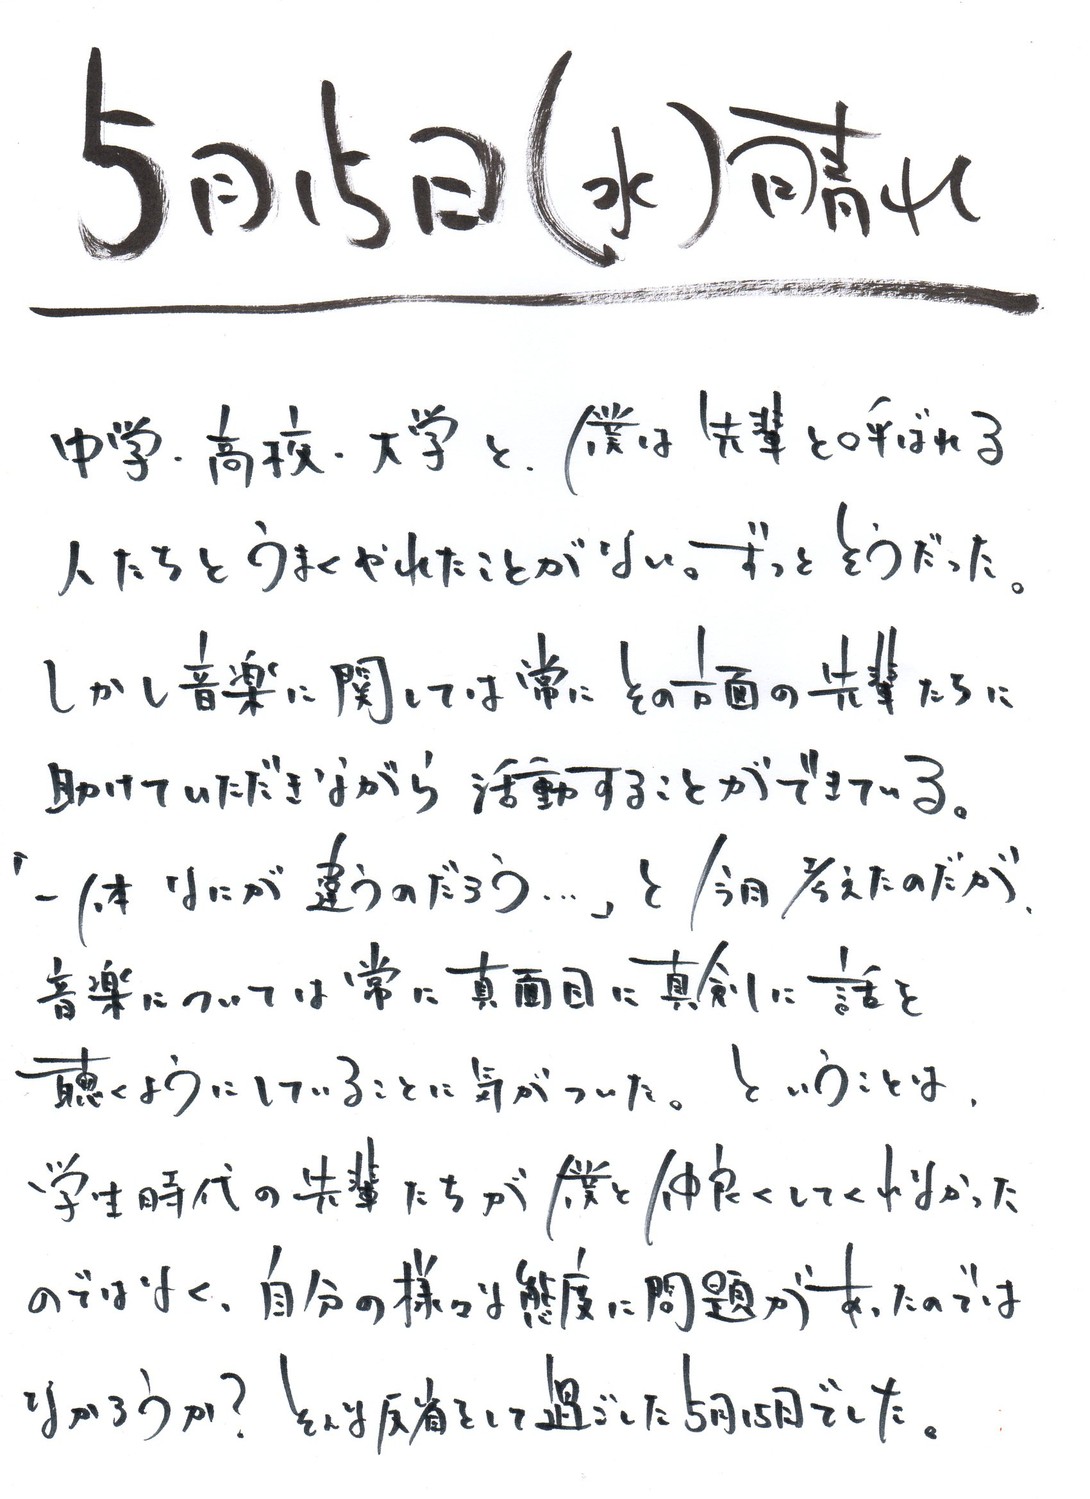 5月15日(水)晴れ
中学・高校・大学と、僕は先輩と呼ばれる
人たちとうまくやれたことがない。ずっとそうだった。
しかし音楽に関しては常にその方面の先輩たちに
助けていただきながら活動することができている。
「一体なにが違うのだろう…」と今日考えたのだが、
音楽については常に真面目に真剣に話を
聴くようにしていることに気がついた。ということは、
学生時代の先輩たちが僕と仲良くしてくれなかった
のではなく、自分の様々な態度に問題があったのでは
なかろうか?そんな反省をして過ごした5月15日でした。